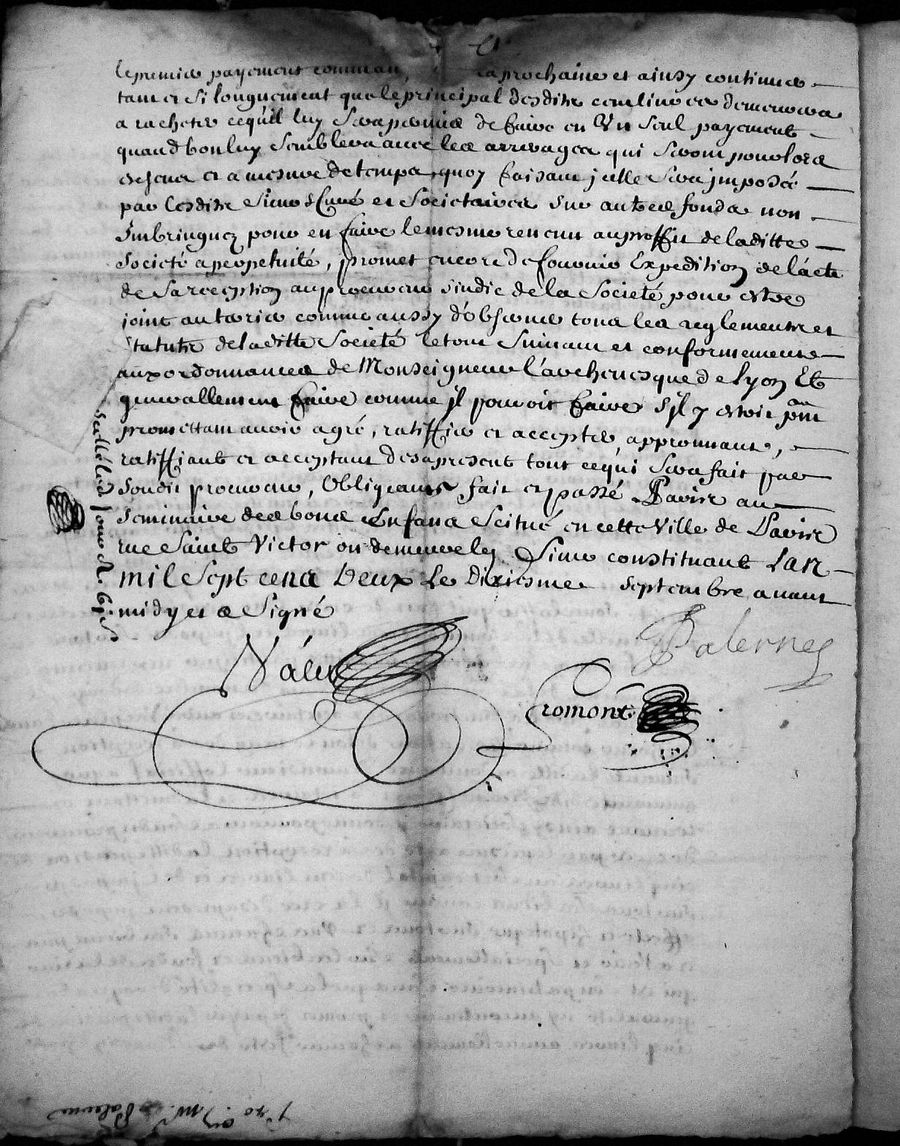 le premier payement comman la prochaine et ainsy continuer
tant et si longuement que le principal desdites cent livres demeurera
a rachepter ce qu'il luy sera permis de faire en un seul payement
quand bon luy semblera avec les arrerages qui seront pour lors
escheus et a mesure de temps, quoy faisant jcelle sera imposée
par lesdits sieurs Curé et Societaires sur autres fonds non
Imbringuez pour en faire le mesme revenu au proffit de laditte
Societé a perpetuité, promet encore de fournir Expedition de l'acte
de sa reception au procureur sindic de la Societé pour estre
joint au tarif comme aussy d'observer tous les reglements et
statuts de laditte Societé le tout suivant et conformement
aux ordonnances de Monseigneur l'archevesque de Lyon Et
generallement faire comme jl pouroit faire s'jl y estoit pnt
promettant avoir agré, ratiffier et accepter approuvant,
ratiffiant et acceptant des apresent tout ce qui sera fait par
sondit procureur, Obligeant fait et passé a Paris au
Seminaire des bons Enfans scitué en cette Ville de Paris
rue Saint Victor ou demeure led Sieur constituant Lan
mil Sept cens Deux Le dixiesme septembre avant
midy et a Signé
scellé lesd jour et
Palerne
Valet
Fromont
mr Palerne